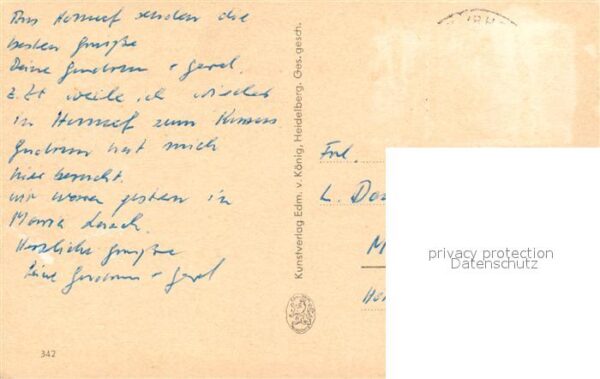 Aus Honnef senden die
besten Grüße
Deine Gudrun + Gerd.
z. Zt weile ich wieder
in Honnef zum Kursus
Gudrun hat mich
hier besucht.
wir waren gestern in
Maria Laach.
Herzliche Grüße
Deine Gudrun + Gerd
342
Kunstverlag Edm. v. König, Heidelberg. Ges. gesch.
Frl.
L. Da
M
privacy protection
Datenschutz